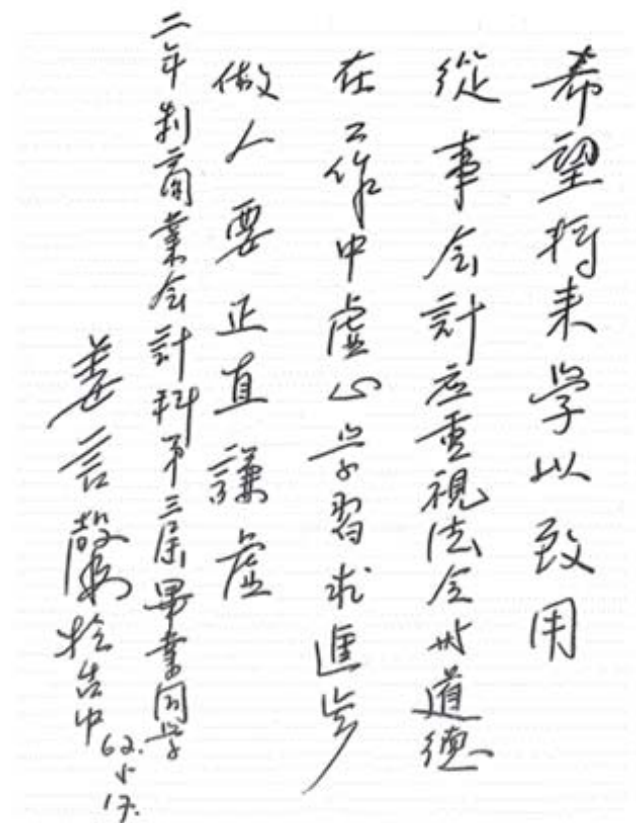 希望將来学以致用
從事会計应重視法令与道德
在工作中虛心学習求進步
做人要正直謙虛
二年制商業会計科第三屆畢業同学
姜言馨於台中
62.5.17.